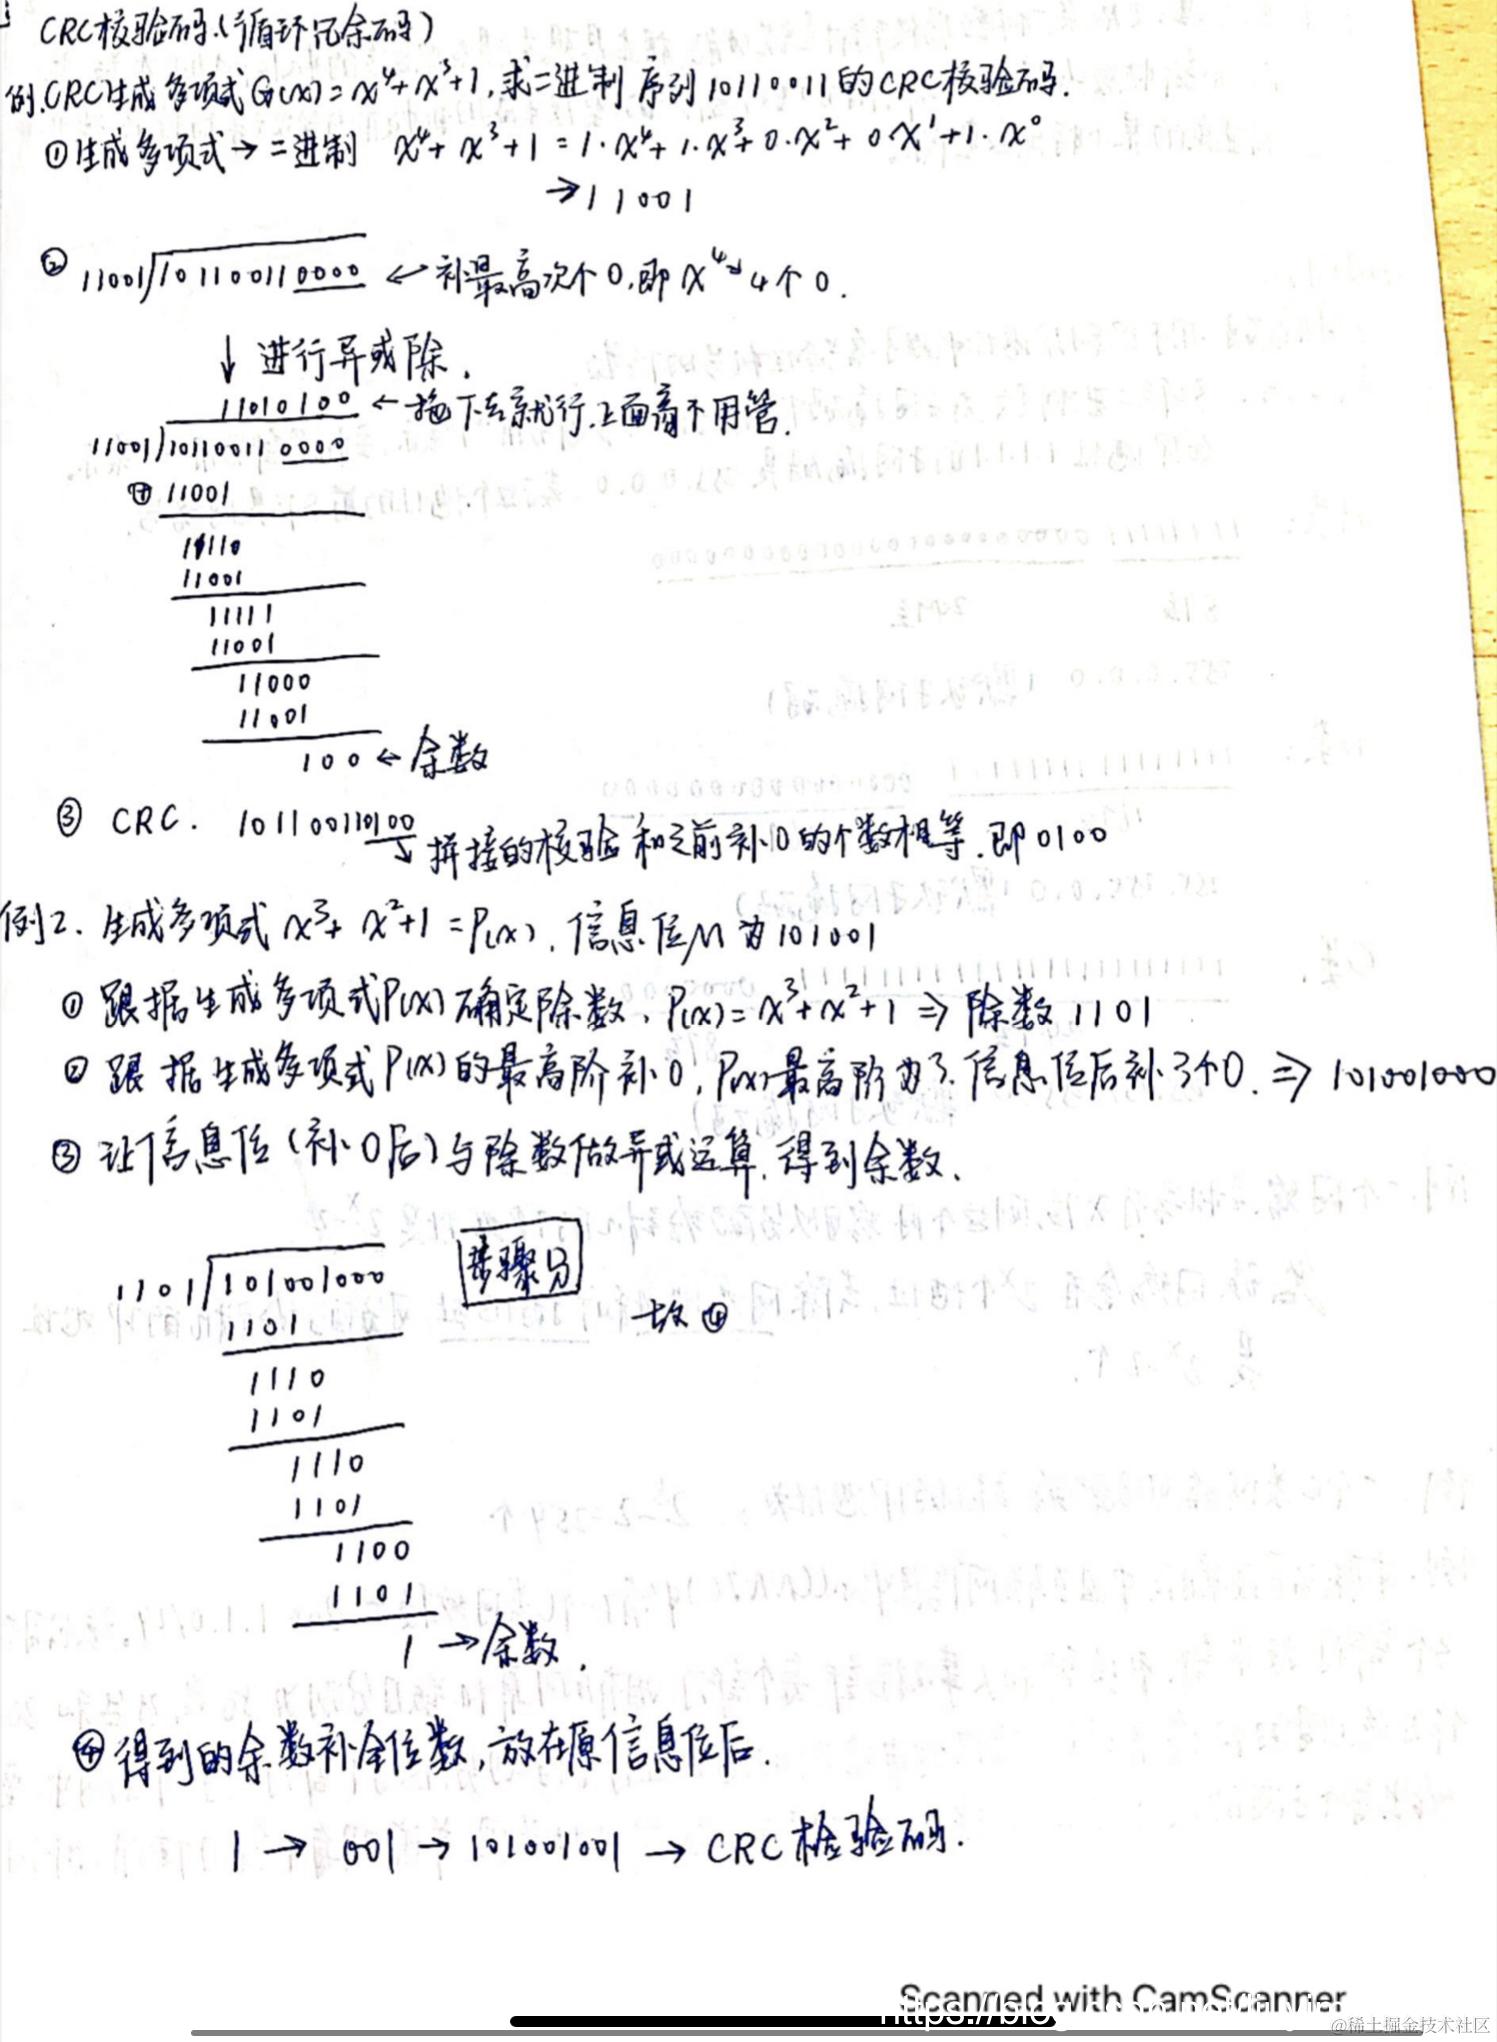 CRC校验码(循环冗余码)
例.CRC生成多项式G(x)=x⁴+x³+1,求二进制序列10110011的CRC校验码.
①生成多项式→二进制 x⁴+x³+1=1·x⁴+1·x³+0·x²+0·x¹+1·x⁰
→11001
② 11001 101100110000 ←补最高次个0,即x⁴→4个0.
↓进行异或除.
11010100 ←拖下去就行,上面商不用管.
11001 101100110000
⊕11001
11110
11001
11111
11001
11000
11001
100←余数
③ CRC. 101100110100
→拼接的校验和之前补0的个数相等.即0100
例2.生成多项式x³+x²+1=P(x),信息位M为101001
①跟据生成多项式P(x)确定除数,P(x)=x³+x²+1⇒除数1101
②跟据生成多项式P(x)的最高阶补0,P(x)最高阶为3.信息位后补3个0.⇒101001000
③让信息位(补0后)与除数做异或运算,得到余数.
步骤分
1101 101001000
1101
故④
1110
1101
1110
1101
1100
1101
1→余数.
④得到的余数补全位数,放在原信息位后.
1→001→101001001→CRC检验码.
Scanned with CamScanner
@稀土掘金技术社区